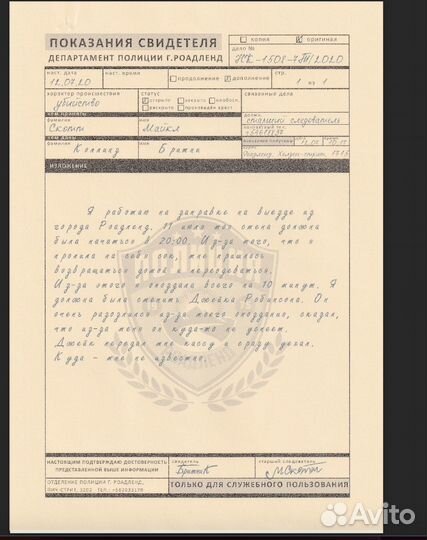 копия оригинал
ПОКАЗАНИЯ СВИДЕТЕЛЯ
ДЕПАРТАМЕНТ ПОЛИЦИИ Г.РОАДЛЕНД
дело №
УСК-1508-7П/2020
наст. дата
12.07.20
наст. время
продолжение дополнение
стр.
1 из 1
характер происшествия
убийство
статус
открыто закрыто необосн.
раскрыто
связанные дела
кем принято
фамилия
Скотт
имя
Майкл
должн.
старший следователь
фамилия
Коллинз
имя
Бритни
адрес
ИЗЛОЖЕНИЕ
Я работаю на заправке на выезде из
города Роадленд. 11 июля моя смена должна
была начаться в 20:00. Из-за того, что я
пролила на себя сок, мне пришлось
возвращаться домой и переодеваться.
Из-за этого я опоздала всего на 10 минут. Я
должна была сменить Джейка Робинсона. Он
очень разозлился из-за моего опоздания, сказал,
что из-за меня он куда-то не успеет.
Джейк передал мне кассу и сразу уехал.
Куда - мне не известно.
НАСТОЯЩИМ ПОДТВЕРЖДАЮ ДОСТОВЕРНОСТЬ
ПРЕДСТАВЛЕННОЙ ВЫШЕ ИНФОРМАЦИИ
свидетель
старший следователь
М.Скотт
ОТДЕЛЕНИЕ ПОЛИЦИИ Г. РОАДЛЕНД,
ТОЛЬКО ДЛЯ СЛУЖЕБНОГО ПОЛЬЗОВАНИЯ
Avito